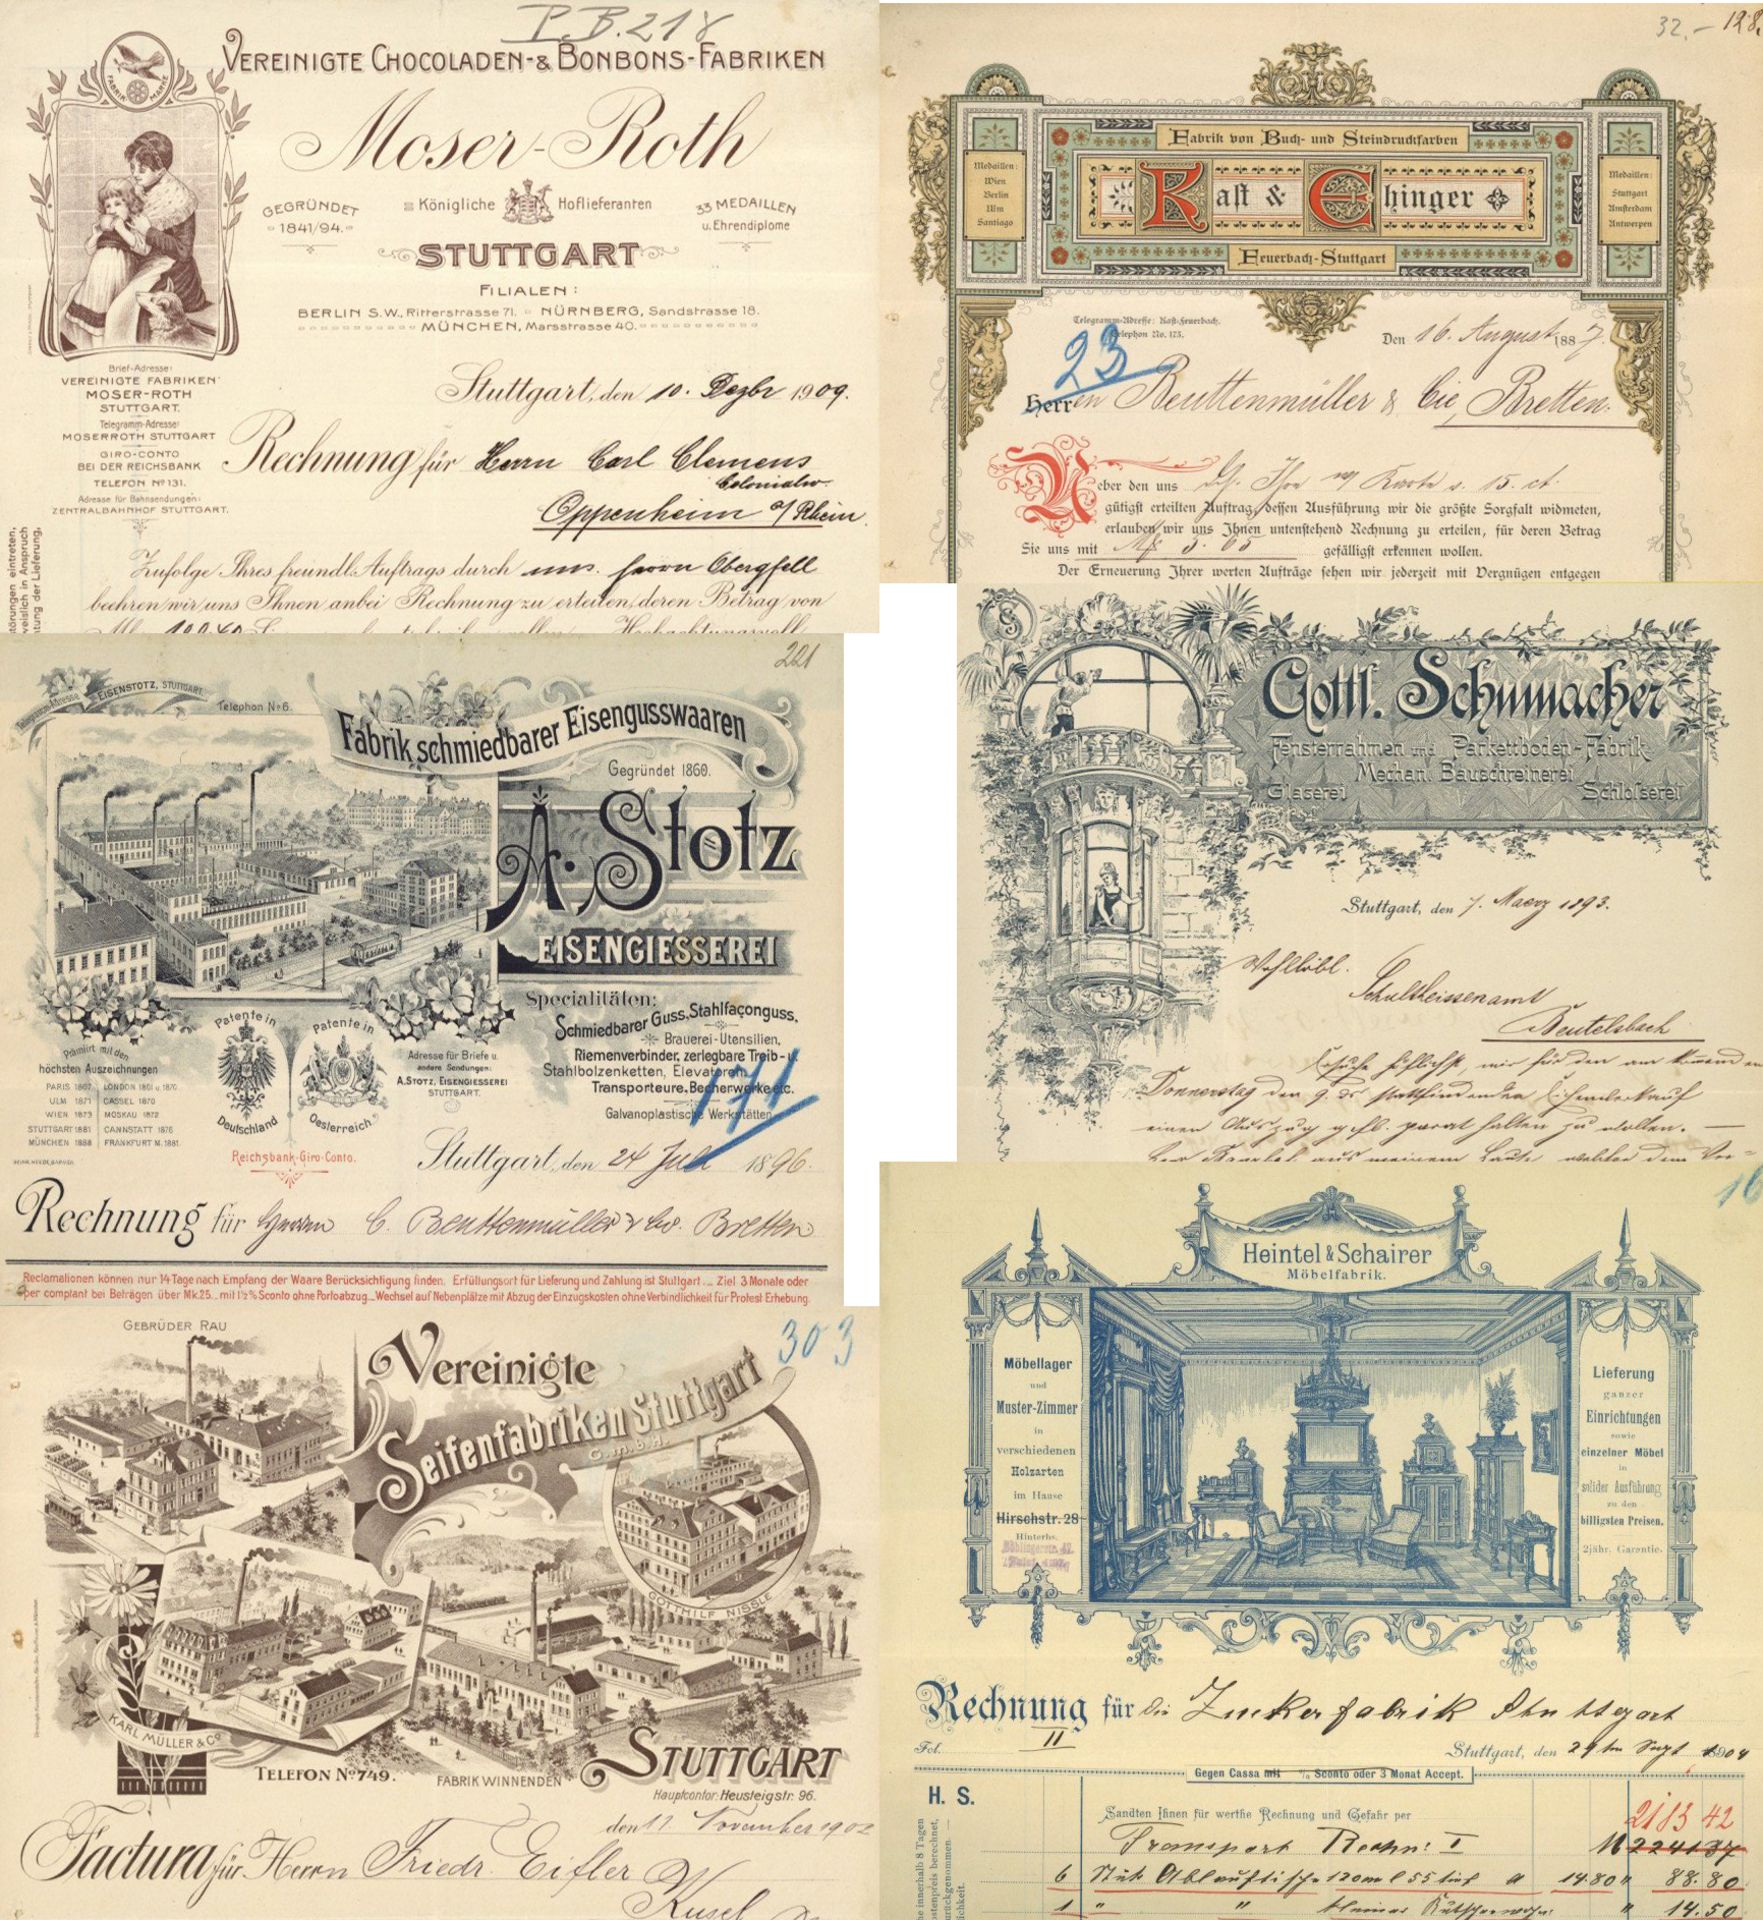 P.B. 218
VEREINIGTE CHOCOLADEN- & BONBONS-FABRIKEN
FABRIK MARKE
Moser-Roth
GEGRÜNDET
1841/94.
Königliche Hoflieferanten
33 MEDAILLEN
u. Ehrendiplome
STUTTGART
FILIALEN:
BERLIN S.W., Ritterstrasse 71. NÜRNBERG, Sandstrasse 18.
MÜNCHEN, Marsstrasse 40.
Brief-Adresse:
VEREINIGTE FABRIKEN
MOSER-ROTH
STUTTGART.
Telegramm-Adresse:
MOSERROTH STUTTGART
GIRO-CONTO
BEI DER REICHSBANK
TELEFON No 131.
Adresse für Bahnsendungen:
ZENTRALBAHNHOF STUTTGART.
Stuttgart, den 10. Dezbr 1909.
Rechnung für Herrn Carl Clemens
Colonialw.
Oppenheim a/Rhein.
Zufolge Ihres freundl. Auftrags durch uns. Herrn Obergfell
beehren wir uns Ihnen anbei Rechnung zu erteilen, deren Betrag von
störungen eintreten,
weislich in Anspruch
htung der Lieferung.
32.- 128.
Fabrik von Buch- und Steindruckfarben
Kast & Ehinger
Feuerbach-Stuttgart
Medaillen:
Wien
Berlin
Ulm
Santiago
Medaillen:
Stuttgart
Amsterdam
Antwerpen
Telegramm-Adresse: Kast-Feuerbach.
Telephon No. 175.
Den 16. August 1887.
23
Herren Beuttenmüller & Cie, Bretten.
Ueber den uns
gütigst erteilten Auftrag, dessen Ausführung wir die größte Sorgfalt widmeten,
erlauben wir uns Ihnen untenstehend Rechnung zu erteilen, für deren Betrag
Sie uns mit gefälligst erkennen wollen.
Der Erneuerung Ihrer werten Aufträge sehen wir jederzeit mit Vergnügen entgegen
221
Telegramm-Adresse EISENSTOTZ, STUTTGART.
Telephon No 6.
Fabrik schmiedbarer Eisengusswaaren
Gegründet 1860.
A. Stotz
EISENGIESSEREI
Specialitäten:
Schmiedbarer Guss, Stahlfaçonguss,
Brauerei-Utensilien,
Riemenverbinder, zerlegbare Treib- u.
Stahlbolzenketten, Elevatoren,
Transporteure. Becherwerke etc.
Galvanoplastische Werkstätten
171
Prämiirt mit den
höchsten Auszeichnungen
PARIS 1867 LONDON 1861 u. 1870.
ULM 1871 CASSEL 1870
WIEN 1873 MOSKAU 1872
STUTTGART 1881 CANNSTATT 1876
MÜNCHEN 1888 FRANKFURT M. 1881.
Patente in
Deutschland
Patente in
Oesterreich
Adresse für Briefe u.
andere Sendungen:
A. STOTZ, EISENGIESSEREI
STUTTGART.
Reichsbank-Giro-Conto.
Stuttgart, den 24 Juli 1896.
Rechnung für Herren C. Beuttenmüller & Co. Bretten
Reclamationen können nur 14 Tage nach Empfang der Waare Berücksichtigung finden. Erfüllungsort für Lieferung und Zahlung ist Stuttgart. Ziel 3 Monate oder
per comptant bei Beträgen über Mk. 25.- mit 1½% Sconto ohne Portoabzug. Wechsel auf Nebenplätze mit Abzug der Einzugskosten ohne Verbindlichkeit für Protest Erhebung.
GS
Gottl. Schumacher
Fensterrahmen und Parkettboden-Fabrik
Mechan. Bauschreinerei
Glaserei Schlosserei
Stuttgart, den 7. Maerz 1893.
Wohllöbl.
Schultheissenamt
Beutelsbach
Ersuche höflichst, mir für den am
Donnerstag den 9. ds stattfindenden
einen Auszug gefl. parat halten zu wollen. —
GEBRÜDER RAU
303
Vereinigte
Seifenfabriken Stuttgart
G.m.b.H.
GOTTHILF NISSLE
KARL MÜLLER & Co
TELEFON No 749.
FABRIK WINNENDEN
STUTTGART
Hauptcontor: Heusteigstr. 96.
den 17. November 1902
Factura für Herrn Friedr. Eifler
Kusel
16
Heintel & Schairer
Möbelfabrik.
Möbellager
und
Muster-Zimmer
in
verschiedenen
Holzarten
im Hause
Hirschstr. 28
Hinterhs.
Böblingerstr. 42.
Lieferung
ganzer
Einrichtungen
sowie
einzelner Möbel
in
solider Ausführung
zu den
billigsten Preisen.
2jähr. Garantie.
Rechnung für die Zuckerfabrik Stuttgart
II
Fol.
Stuttgart, den 29ten Sept 1904
Gegen Cassa mit % Sconto oder 3 Monat Accept.
H. S.
Sandten Ihnen für werthe Rechnung und Gefahr per
2183 42
Transport Rechn: I M 2241 37
6 Stück Ablauftische 120 cm l 55 tief a 14.80 " 88.80
1 " " " 14.50